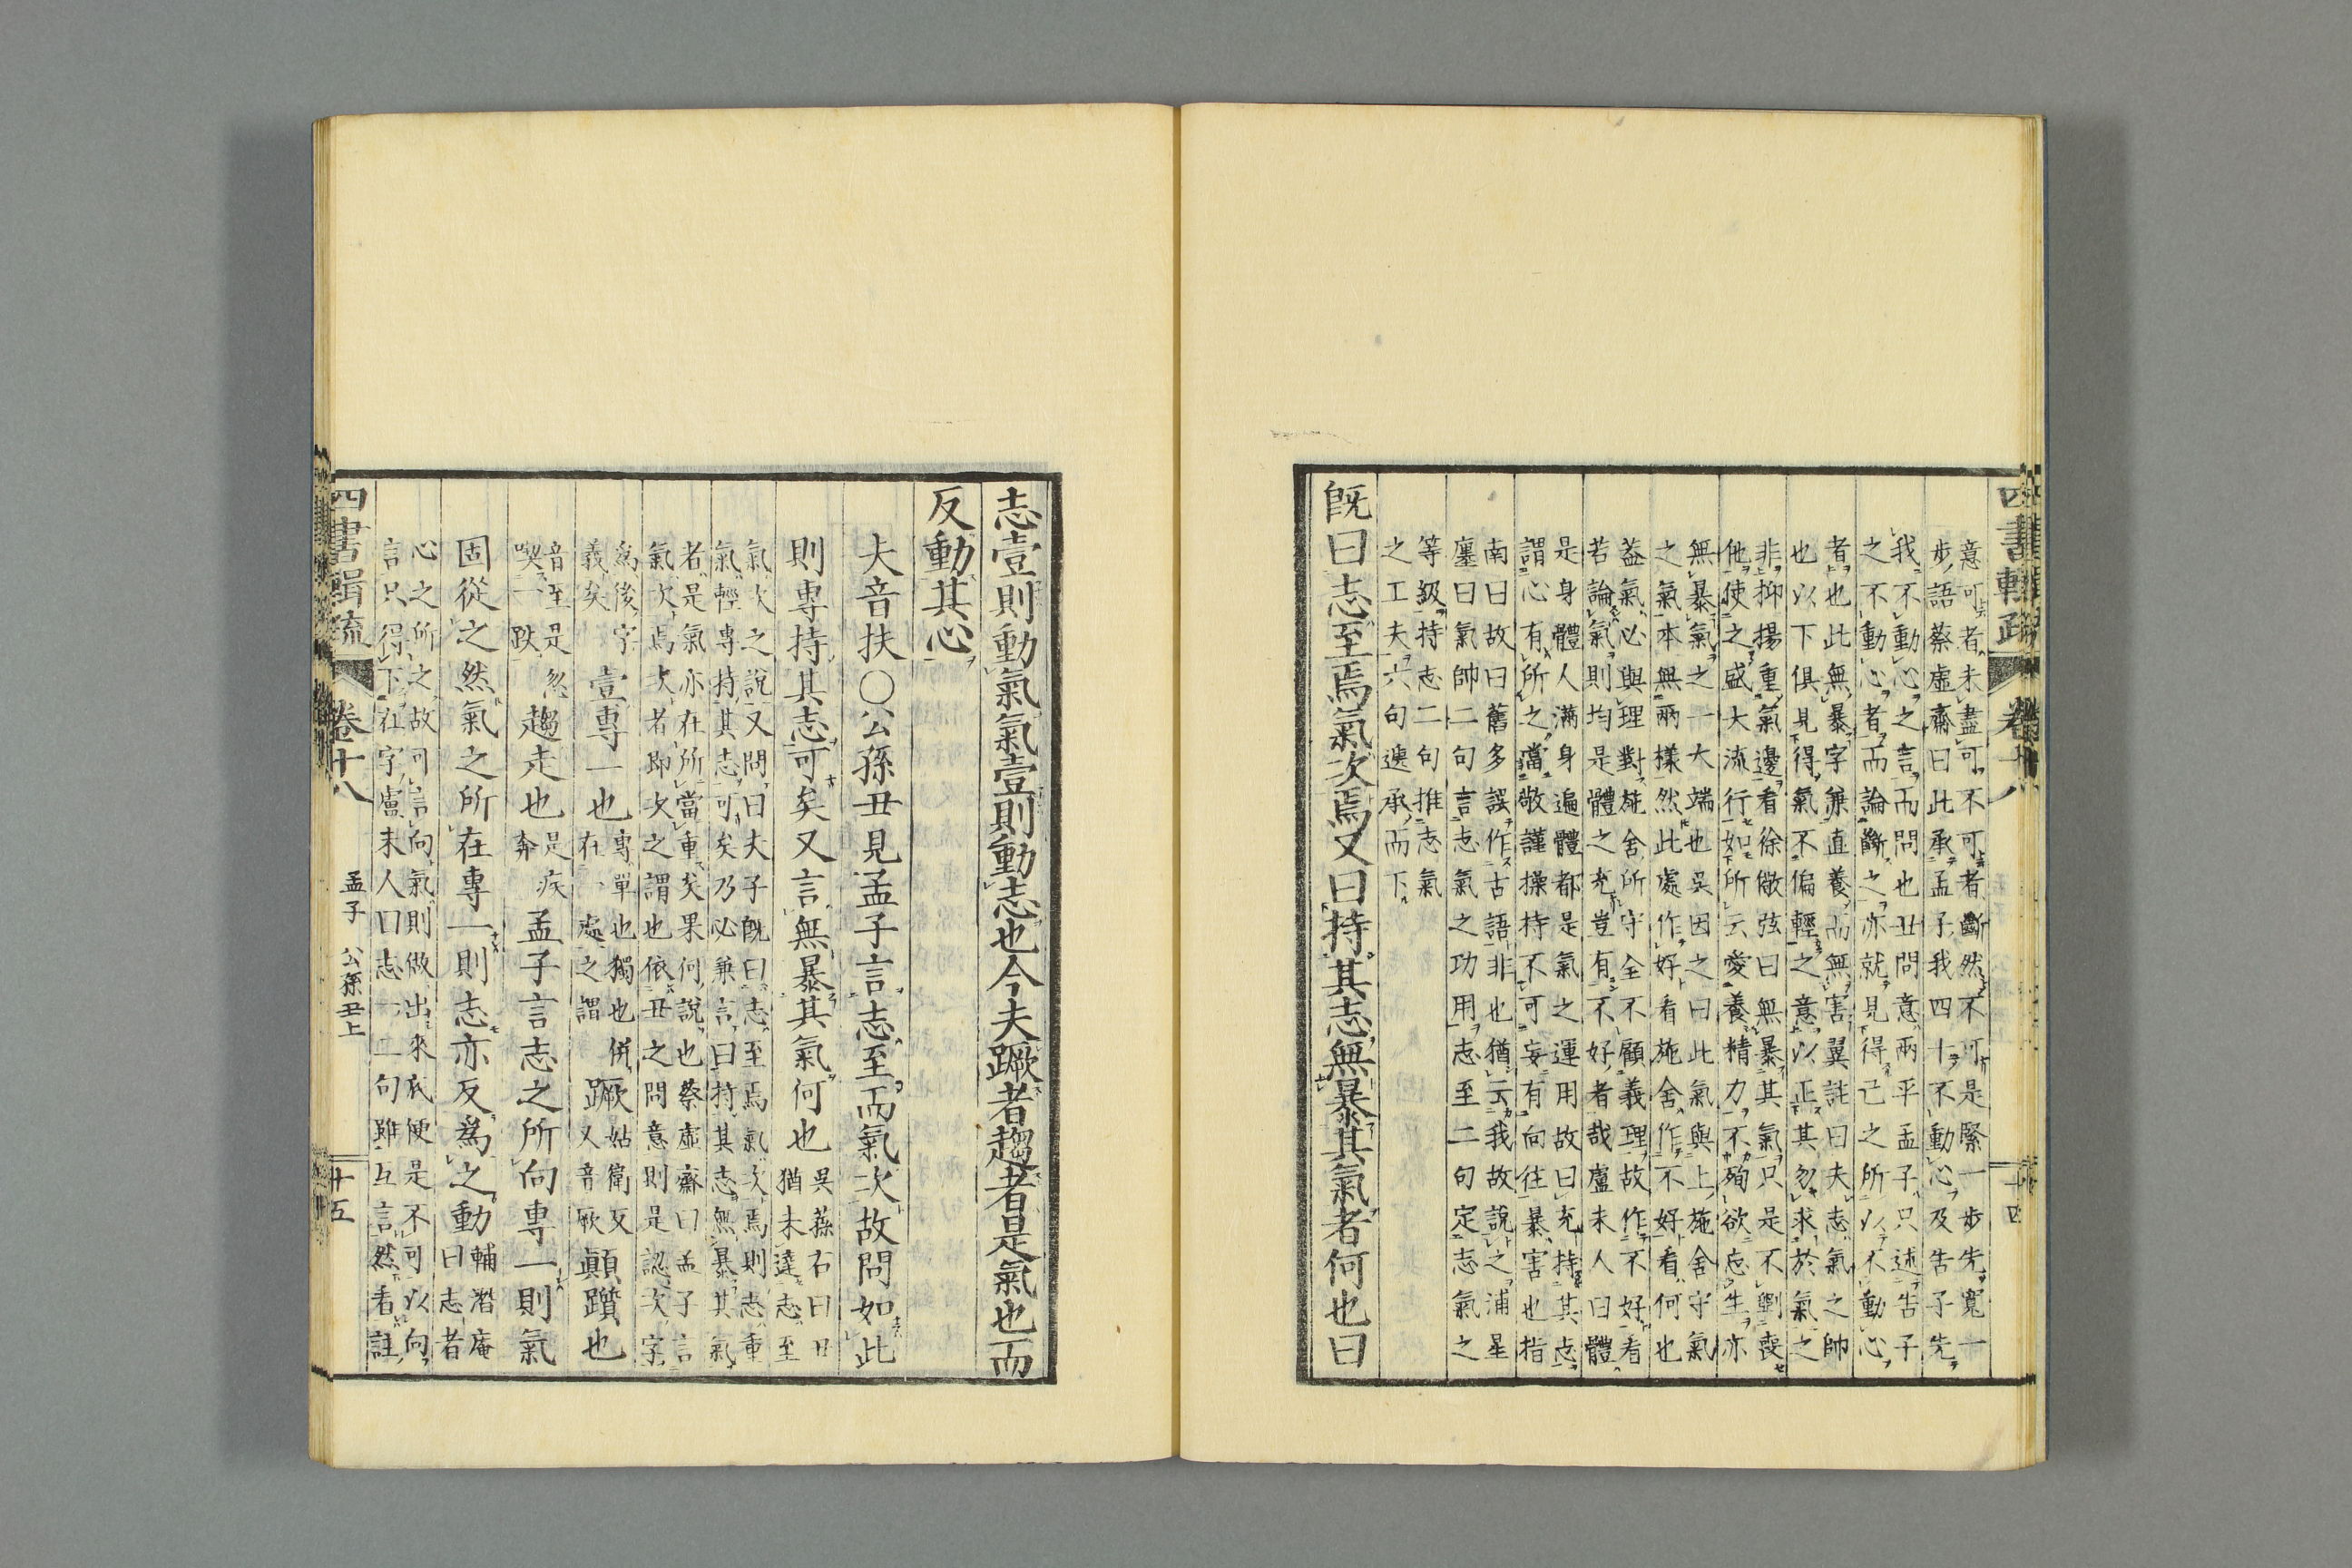 四書輯疏 卷十八 十四
意可者未盡可不可者斷然不可是緊一步先寬一
步語蔡虛齋曰此承孟子我四十不動心及告子先
我不動心之言而問也丑問意兩平孟子只述告子
之不動心者而論斷之亦就見得己之所以不動心
者也此無暴字兼直養而無害翼註曰夫志氣之帥
也以下俱見得氣不偏輕之意以正其勿求於氣之
非抑揚重氣邊看徐儆弦曰無暴其氣只是不剿喪
他使之盛大流行如所云愛養精力不殉欲忘生亦
無暴氣之一大端也吳因之曰此氣與上施舍守氣
之氣本無兩樣然此處作好看施舍作不好看何也
蓋氣必與理對施舍所守全不顧義理故作不好看
若論氣則均是體之充豈有不好者哉盧未人曰體
是身體人滿身遍體都是氣之運用故曰充持其志
謂心有所之當敬謹操持不可妄有向往暴害也指
南曰故曰舊多誤作古語非也猶云我故說之浦星
塵曰氣帥二句言志氣之功用志至二句定志氣之
等級持志二句推志氣
之工夫六句遞承而下
既曰志至焉氣次焉又曰持其志無暴其氣者何也曰
志壹則動氣氣壹則動志也今夫蹶者趨者是氣也而
反動其心
夫音扶○公孫丑見孟子言志至而氣次故問如此
則專持其志可矣又言無暴其氣何也
吳蓀石曰日
猶未達志至
氣次之說又問曰夫子既曰志至焉氣次焉則志重
氣輕專持其志可矣乃必兼言曰持其志無暴其氣
者是氣亦在所當重矣果何說也蔡虛齋曰孟子言
氣次焉次者即次之謂也依丑之問意則是認次字
為後字
義矣
壹專一也
專單也獨也併
在一處之謂
蹶
姑衛反
又音厥
顛躓也
音至是忽
喫一跌
趨走也
是疾
奔
孟子言志之所向專一則氣
固從之然氣之所在專一則志亦反為之動
輔潛庵
曰志者
心之所之故可言向氣則做出來底便是不可以向
言只得下在字盧未人曰志一二句雖互言然看註
四書輯疏 卷十八 孟子 公孫丑上 十五